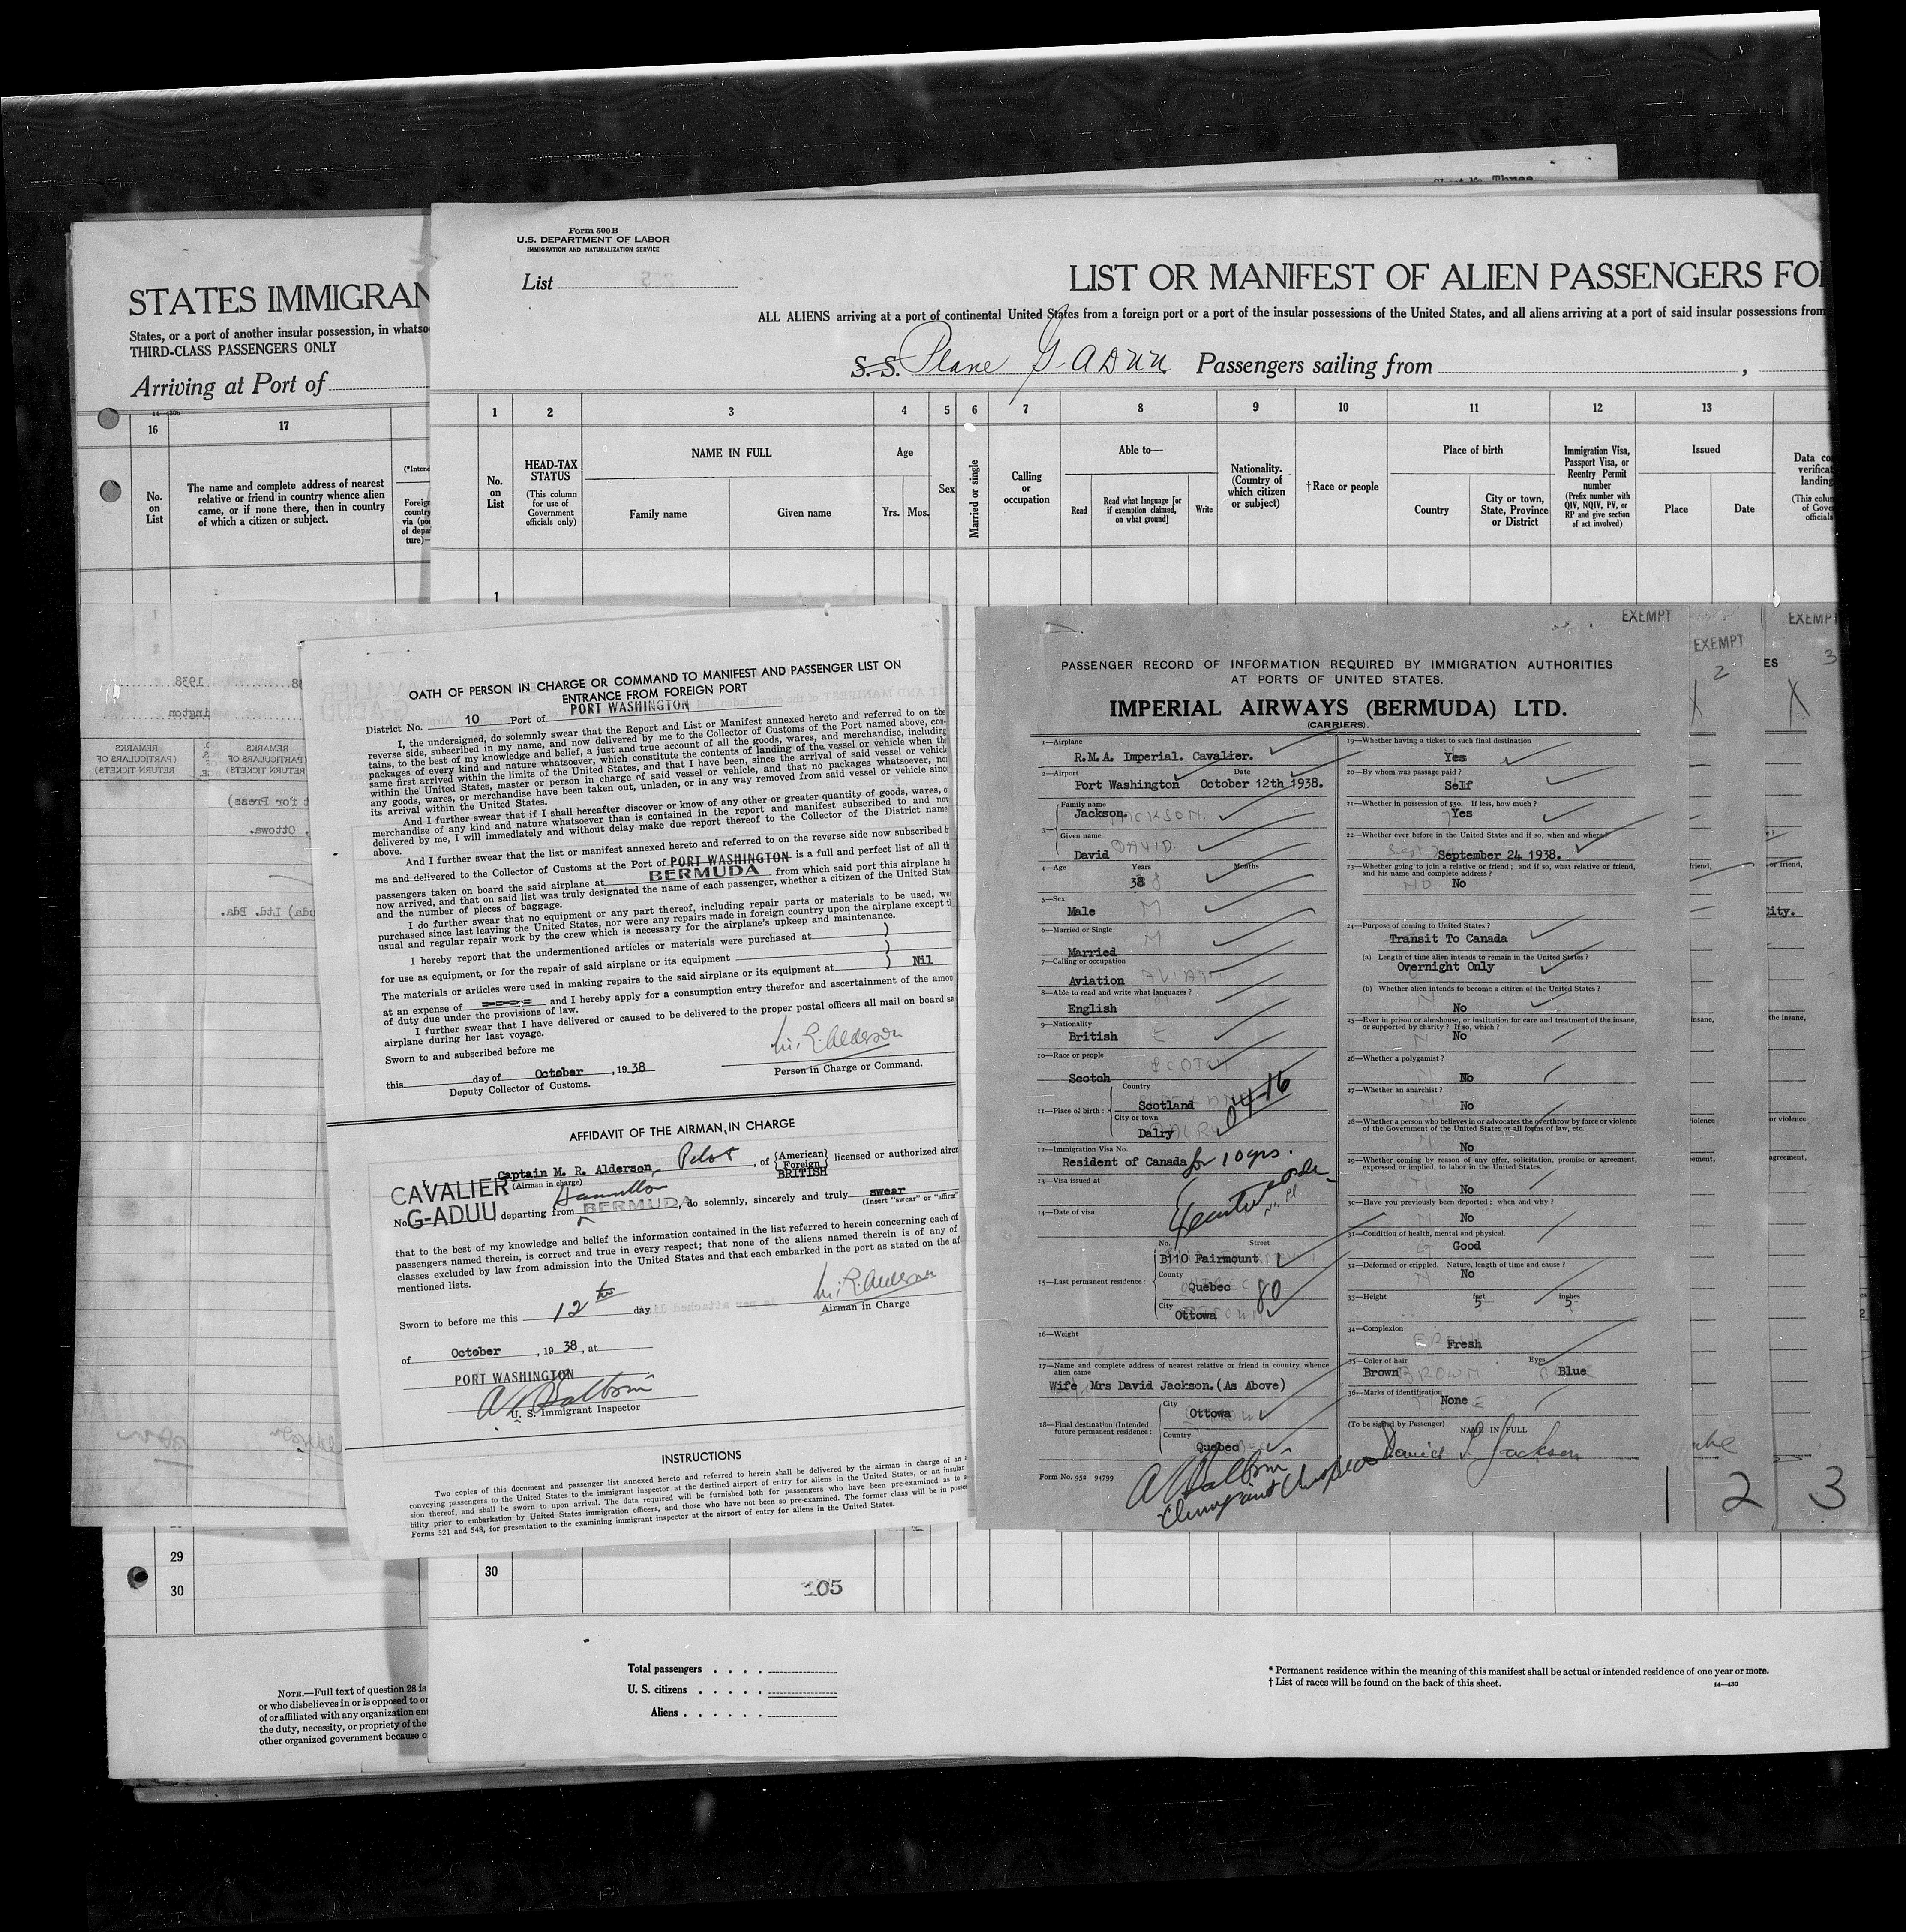 Form 500 B
U.S. DEPARTMENT OF LABOR
IMMIGRATION AND NATURALIZATION SERVICE
List
LIST OR MANIFEST OF ALIEN PASSENGERS FO
ALL ALIENS arriving at a port of continental United States from a foreign port or a port of the insular possessions of the United States, and all aliens arriving at a port of said insular possessions from
S. S. Plane G-ADUU Passengers sailing from
STATES IMMIGRAN
States, or a port of another insular possession, in whatso
THIRD-CLASS PASSENGERS ONLY
Arriving at Port of
16 17
No. on List
The name and complete address of nearest
relative or friend in country whence alien
came, or if none there, then in country
of which a citizen or subject.
1 2 3 4 5 6 7 8 9 10 11 12 13
No. on List
HEAD-TAX STATUS
(This column for use of Government officials only)
NAME IN FULL
Family name
Given name
Age
Yrs. Mos.
Sex
Married or single
Calling or occupation
Able to—
Read
Read what language [or if exemption claimed, on what ground]
Write
Nationality. (Country of which citizen or subject)
† Race or people
Place of birth
Country
City or town, State, Province or District
Immigration Visa, Passport Visa, or Reentry Permit number
(Prefix number with QIV, NQIV, PV, or RP and give section of act involved)
Issued
Place
Date
1
OATH OF PERSON IN CHARGE OR COMMAND TO MANIFEST AND PASSENGER LIST ON
ENTRANCE FROM FOREIGN PORT
District No. 10 Port of PORT WASHINGTON
I, the undersigned, do solemnly swear that the Report and List or Manifest annexed hereto and referred to on the
reverse side, subscribed in my name, and now delivered by me to the Collector of Customs of the Port named above, con-
tains, to the best of my knowledge and belief, a just and true account of all the goods, wares, and merchandise, including
packages of every kind and nature whatsoever, which constitute the contents of landing of the vessel or vehicle when the
same first arrived within the limits of the United States, and that I have been, since the arrival of said vessel or vehicle
within the United States, master or person in charge of said vessel or vehicle, and that no packages whatsoever, nor
any goods, wares, or merchandise have been taken out, unladen, or in any way removed from said vessel or vehicle since
its arrival within the United States.
And I further swear that if I shall hereafter discover or know of any other or greater quantity of goods, wares, o
merchandise of any kind and nature whatsoever than is contained in the report and manifest subscribed to and now
delivered by me, I will immediately and without delay make due report thereof to the Collector of the District name
above.
And I further swear that the list or manifest annexed hereto and referred to on the reverse side now subscribed b
me and delivered to the Collector of Customs at the Port of PORT WASHINGTON is a full and perfect list of all th
passengers taken on board the said airplane at BERMUDA from which said port this airplane ha
now arrived, and that on said list was truly designated the name of each passenger, whether a citizen of the United Stat
and the number of pieces of baggage.
I do further swear that no equipment or any part thereof, including repair parts or materials to be used, we
purchased since last leaving the United States, nor were any repairs made in foreign country upon the airplane except t
usual and regular repair work by the crew which is necessary for the airplane's upkeep and maintenance.
I hereby report that the undermentioned articles or materials were purchased at
for use as equipment, or for the repair of said airplane or its equipment Nil
The materials or articles were used in making repairs to the said airplane or its equipment at
at an expense of and I hereby apply for a consumption entry therefor and ascertainment of the amou
of duty due under the provisions of law.
I further swear that I have delivered or caused to be delivered to the proper postal officers all mail on board sa
airplane during her last voyage.
Sworn to and subscribed before me
M. R. Alderson
this day of October, 1938
Person in Charge or Command.
Deputy Collector of Customs.
AFFIDAVIT OF THE AIRMAN, IN CHARGE
Captain M. R. Alderson, Pilot, of {American Foreign} BRITISH licensed or authorized aircr
(Airman in charge)
CAVALIER
No. G-ADUU departing from Hamilton BERMUDA, do solemnly, sincerely and truly swear
(Insert "swear" or "affirm"
that to the best of my knowledge and belief the information contained in the list referred to herein concerning each of
passengers named therein, is correct and true in every respect; that none of the aliens named therein is of any of
classes excluded by law from admission into the United States and that each embarked in the port as stated on the af
mentioned lists.
M. R. Alderson
Sworn to before me this 12th day
Airman in Charge
of October, 1938, at
PORT WASHINGTON
U. S. Immigrant Inspector
INSTRUCTIONS
Two copies of this document and passenger list annexed hereto and referred to herein shall be delivered by the airman in charge of an
conveying passengers to the United States to the immigrant inspector at the destined airport of entry for aliens in the United States, or an insular
sion thereof, and shall be sworn to upon arrival. The data required will be furnished both for passengers who have been pre-examined as to
bility prior to embarkation by United States immigration officers, and those who have not been so pre-examined. The former class will be in posses
Forms 521 and 548, for presentation to the examining immigrant inspector at the airport of entry for aliens in the United States.
EXEMPT
EXEMPT
EXEMPT
2
3
PASSENGER RECORD OF INFORMATION REQUIRED BY IMMIGRATION AUTHORITIES
AT PORTS OF UNITED STATES.
IMPERIAL AIRWAYS (BERMUDA) LTD.
(CARRIERS).
1—Airplane
R.M.A. Imperial. Cavalier.
2—Airport Date
Port Washington October 12th 1938.
3— Family name
Jackson.
Given name
David
4—Age Years Months
38
5—Sex
Male
6—Married or Single
Married
7—Calling or occupation
Aviation
8—Able to read and write what languages?
English
9—Nationality
British
10—Race or people
Scotch
11—Place of birth: Country
Scotland 04-16
City or town
Dalry
12—Immigration Visa No.
Resident of Canada for 10 yrs.
13—Visa issued at
14—Date of visa
15—Last permanent residence: No. Street
B110 Fairmount
County
Quebec 80
City
Ottowa
16—Weight
17—Name and complete address of nearest relative or friend in country whence
alien came
Wife Mrs David Jackson. (As Above)
18—Final destination (Intended future permanent residence: City
Ottowa
Country
Quebec
Form No. 952 94799
19—Whether having a ticket to such final destination
Yes
20—By whom was passage paid?
Self
21—Whether in possession of $50. If less, how much?
Yes
22—Whether ever before in the United States and if so, when and where?
September 24 1938.
23—Whether going to join a relative or friend; and if so, what relative or friend,
and his name and complete address?
No
24—Purpose of coming to United States?
Transit To Canada
(a) Length of time alien intends to remain in the United States?
Overnight Only
(b) Whether alien intends to become a citizen of the United States?
No
25—Ever in prison or almshouse, or institution for care and treatment of the insane,
or supported by charity? If so, which?
No
26—Whether a polygamist?
No
27—Whether an anarchist?
No
28—Whether a person who believes in or advocates the overthrow by force or violence
of the Government of the United States or all forms of law, etc.
No
29—Whether coming by reason of any offer, solicitation, promise or agreement,
expressed or implied, to labor in the United States.
No
30—Have you previously been deported; when and why?
No
31—Condition of health, mental and physical.
Good
32—Deformed or crippled. Nature, length of time and cause?
No
33—Height feet inches
5 5
34—Complexion
Fresh
35—Color of hair Eyes
Brown Blue
36—Marks of identification
None
(To be signed by Passenger) NAME IN FULL
David J. Jackson
1 2 3
29
30
30
105
Total passengers
U. S. citizens
Aliens
* Permanent residence within the meaning of this manifest shall be actual or intended residence of one year or more.
† List of races will be found on the back of this sheet.
14—430
NOTE.—Full text of question 28 is
or who disbelieves in or is opposed to or
of or affiliated with any organization en
the duty, necessity, or propriety of the
other organized government because o